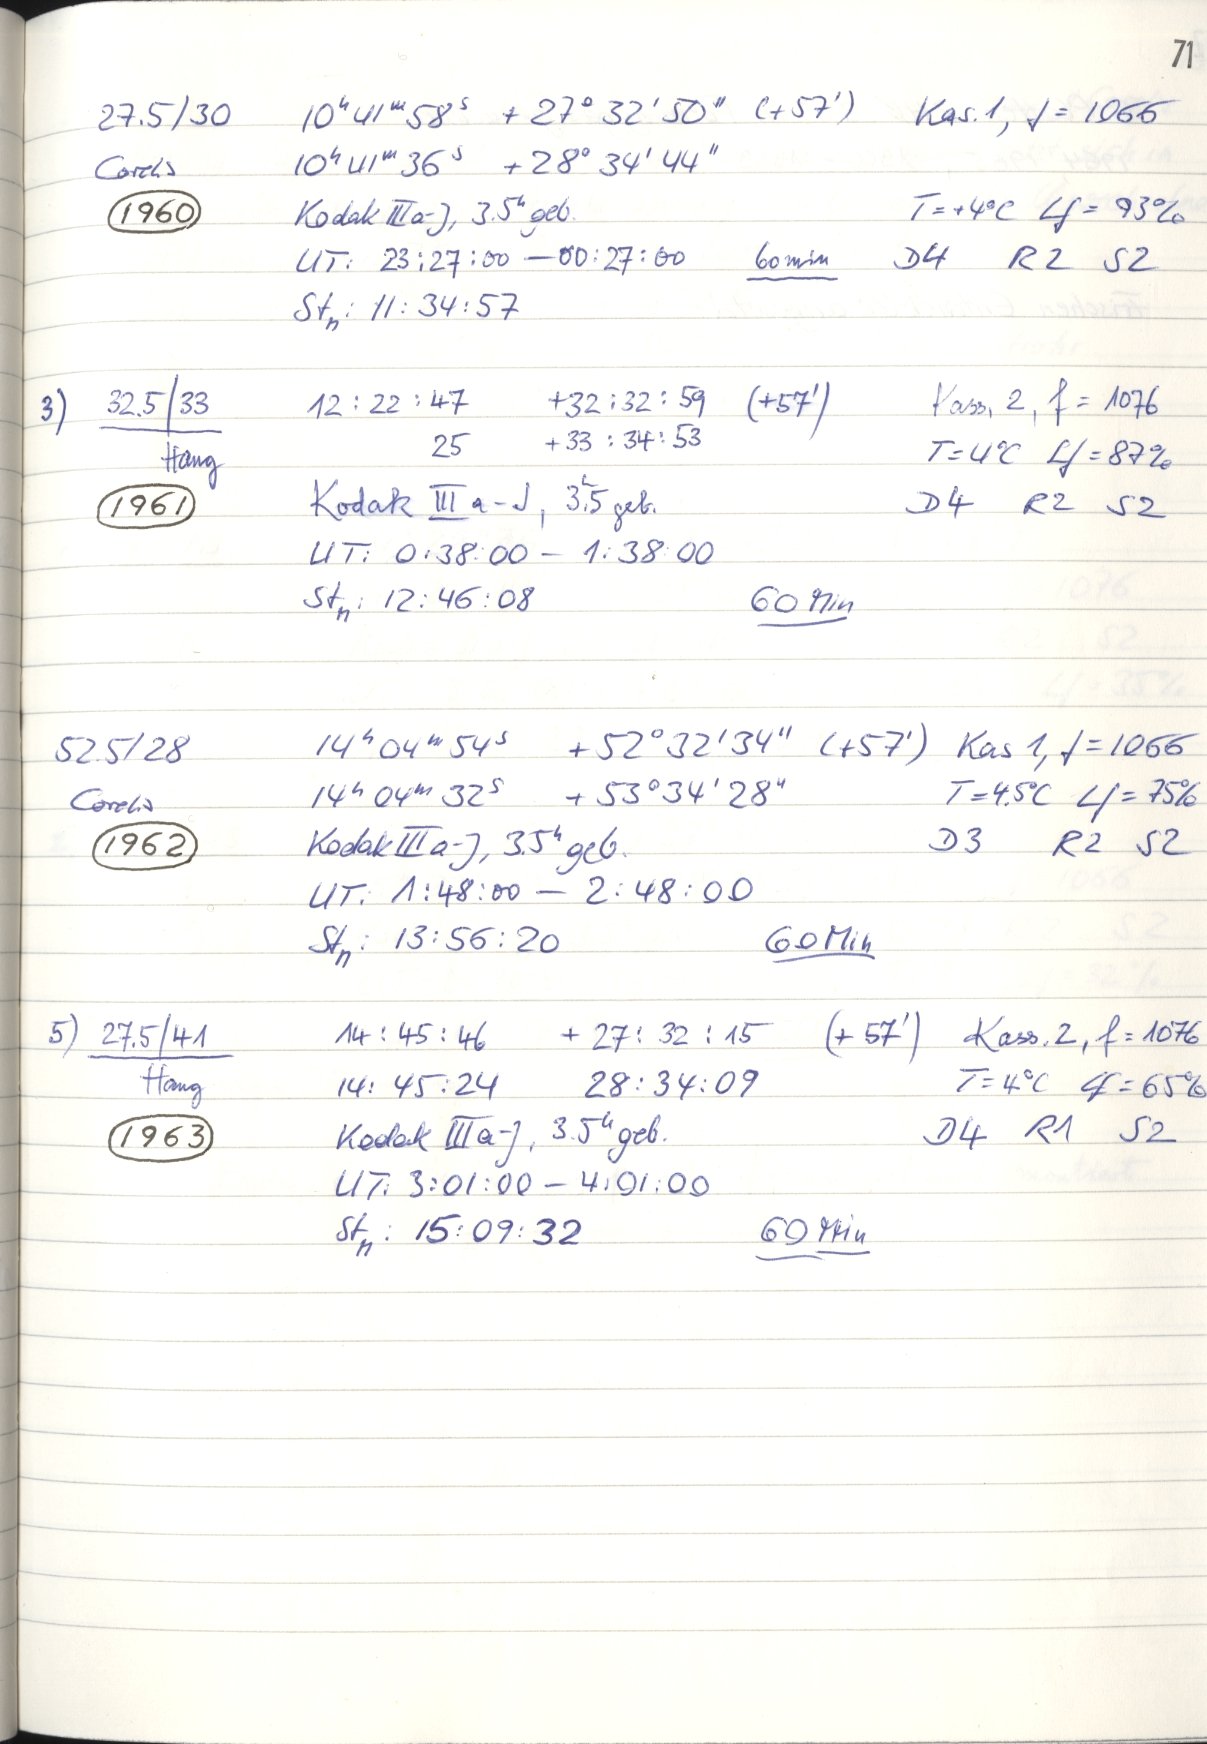 71
27.5/30 10ʰ41ᵐ58ˢ +27°32'50" (+57') Kas. 1, f = 1066
Cordis 10ʰ41ᵐ36ˢ +28°34'44"
1960 Kodak IIIa-J, 3.5ʰ geb. T=+4°C Lf = 93%
UT: 23:27:00 — 00:27:00 60 min D4 R2 S2
Stₙ: 11:34:57
3) 32.5/33 12:22:47 +32:32:59 (+57') Kass. 2, f = 1076
25 +33:34:53
Haug T=4°C Lf = 87%
1961 Kodak III a-J, 3.5ʰ geb. D4 R2 S2
UT: 0:38:00 — 1:38:00
Stₙ: 12:46:08 60 Min
52.5/28 14ʰ04ᵐ54ˢ +52°32'34" (+57') Kas 1, f = 1066
Cordis 14ʰ04ᵐ32ˢ +53°34'28" T=4.5°C Lf = 75%
1962 Kodak IIIa-J, 3.5ʰ geb. D3 R2 S2
UT: 1:48:00 — 2:48:00
Stₙ: 13:56:20 60 Min
5) 27.5/41 14:45:46 +27:32:15 (+57') Kass. 2, f = 1076
Haug 14:45:24 28:34:09 T=4°C Lf = 65%
1963 Kodak IIIa-J, 3.5ʰ geb. D4 R1 S2
UT: 3:01:00 — 4:01:00
Stₙ: 15:09:32 60 Min